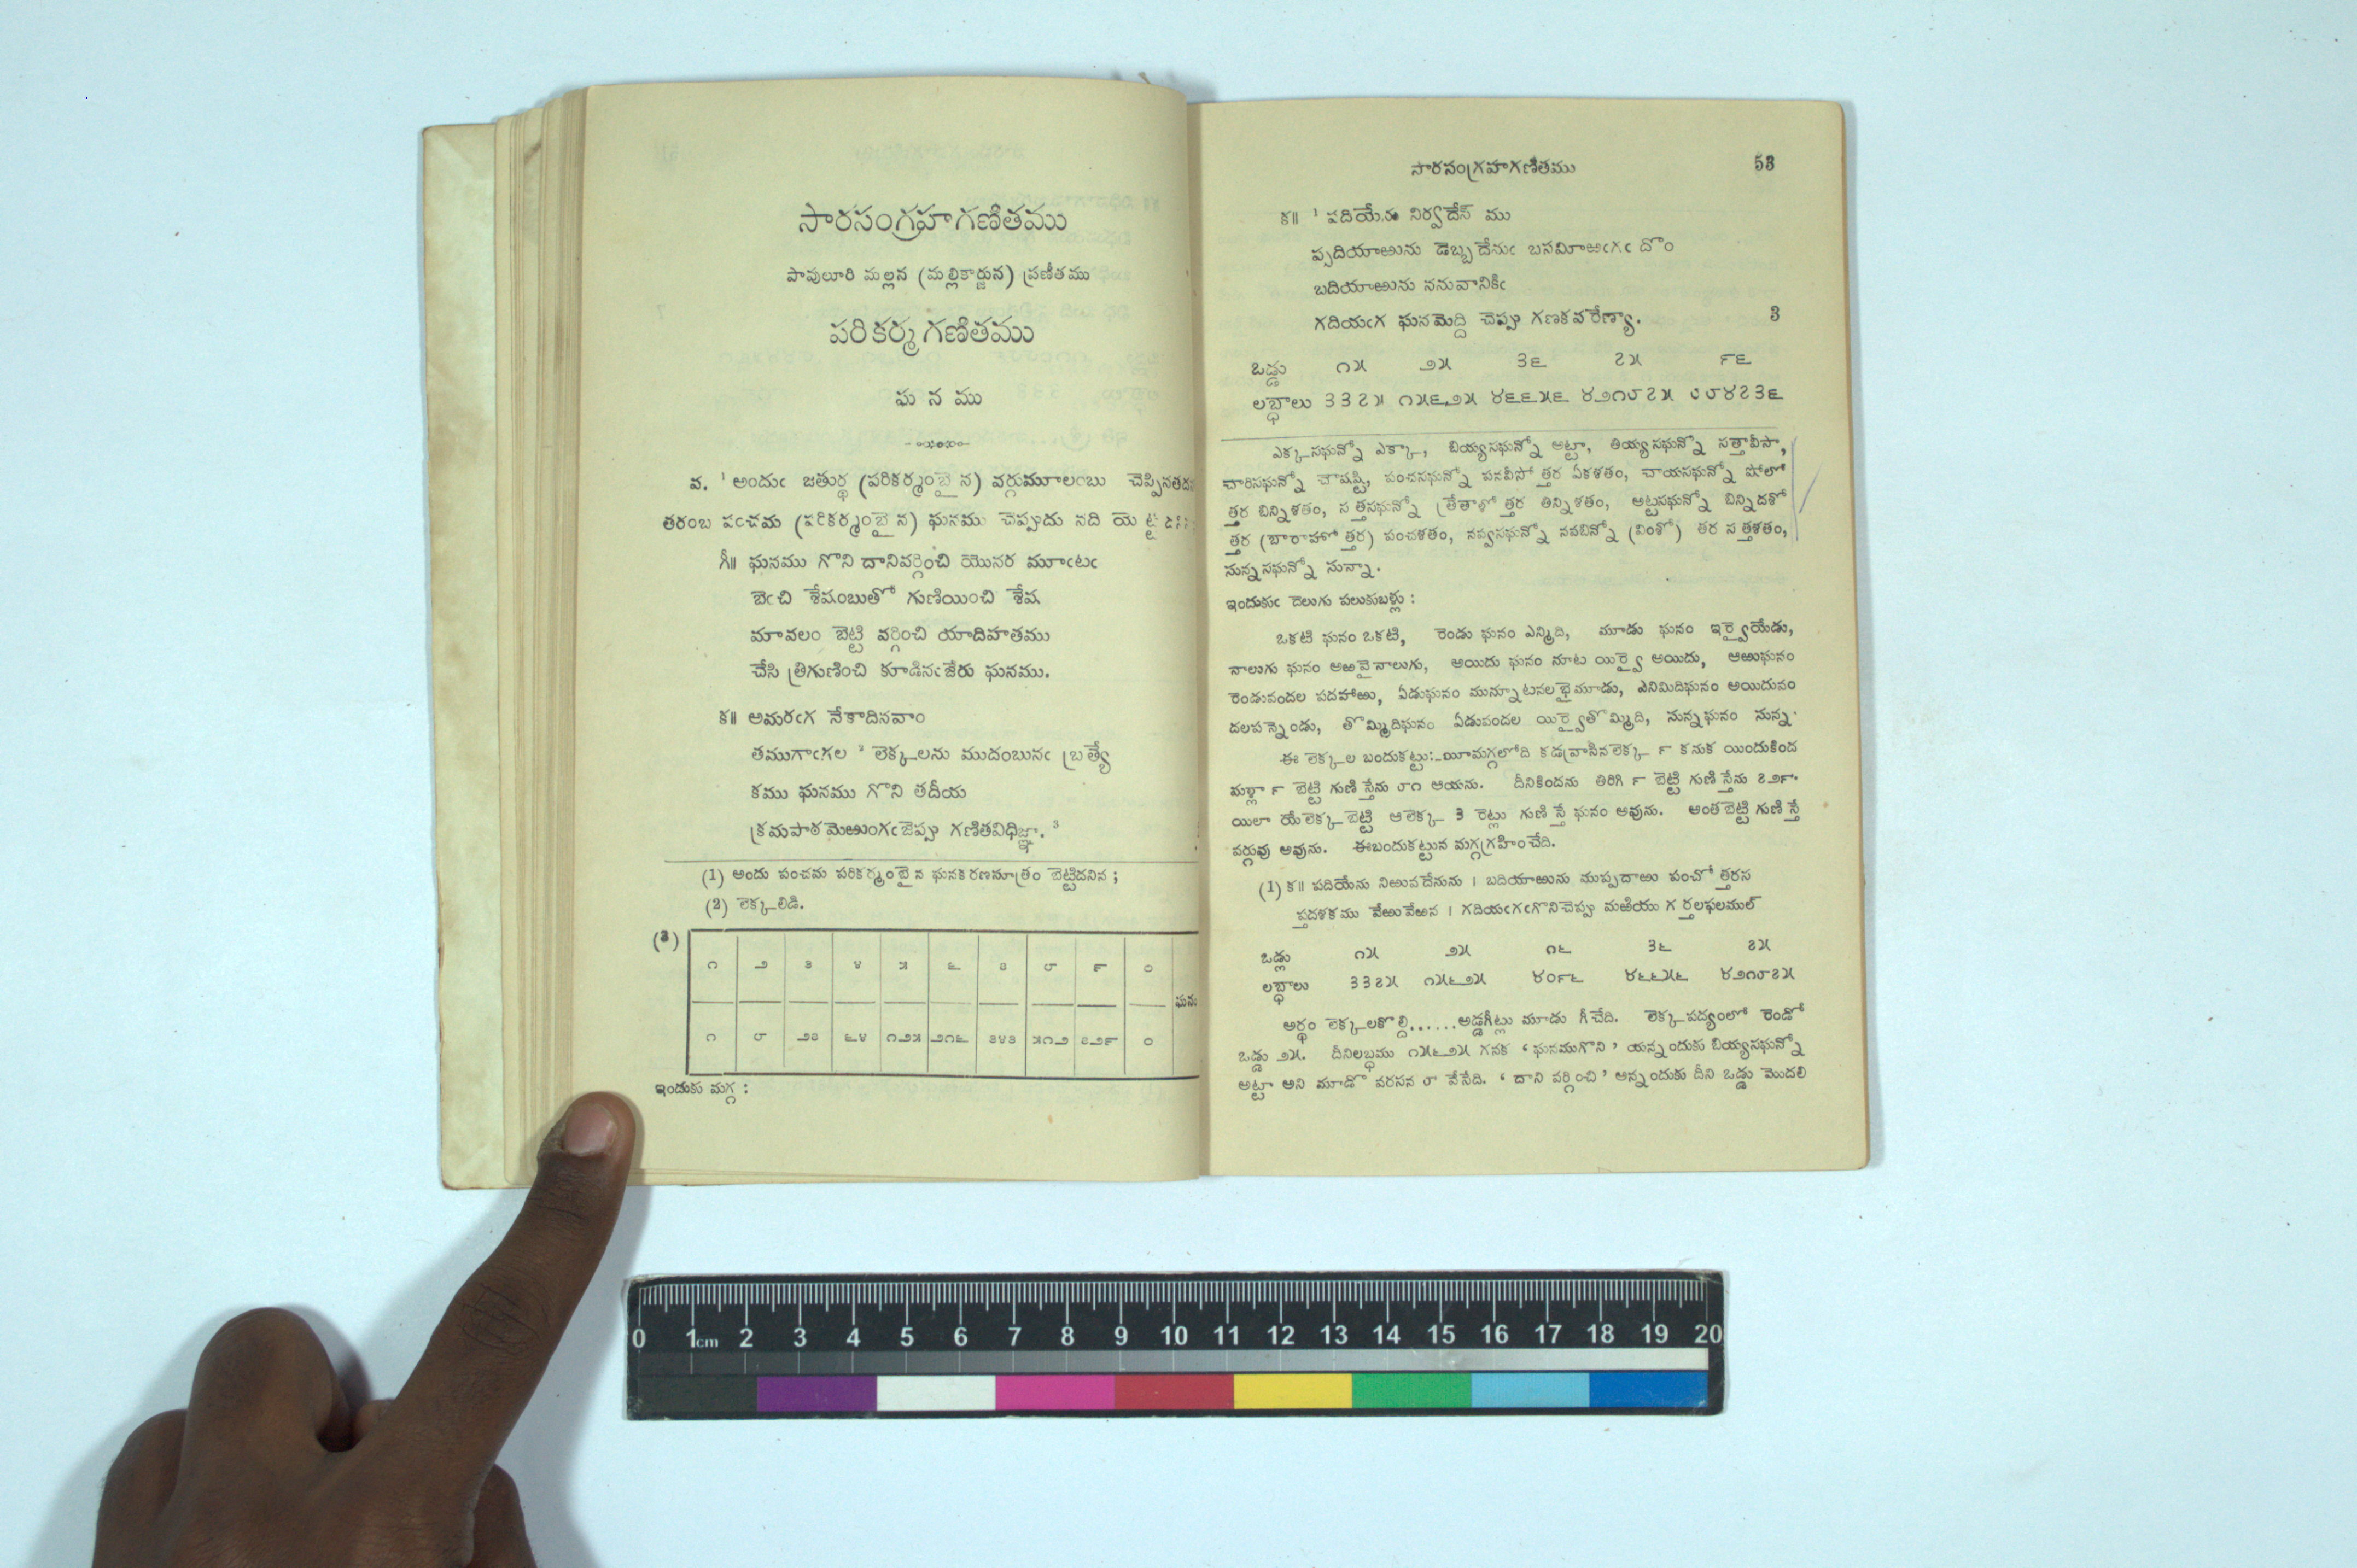 సారసంగ్రహగణితము
పావులూరి మల్లన (మల్లికార్జున) ప్రణీతము
పరికర్మగణితము
ఘ న ము
వ. ¹ అందుఁ జతుర్థ (పరికర్మంబైన) వర్గమూలంబు చెప్పినతద
తరంబ పంచమ (పరికర్మంబైన) ఘనము చెప్పుదు నది యె ట్ట
గీ॥ ఘనము గొని దానివర్గించి యొనర మూఁటఁ
బెఁచి శేషంబుతో గుణియించి శేష
మావలం బెట్టి వర్గించి యాదిహతము
చేసి త్రిగుణించి కూడినఁజేరు ఘనము.
క॥ అమరఁగ నేకాదినవాం
తముగాఁగల ² లెక్కలను ముదంబునఁ బ్రత్యే
కము ఘనము గొని తదీయ
క్రమపాఠమెఱుంగఁజెప్పు గణితవిధిజ్ఞా. ³
(1) అందు పంచమ పరికర్మంబైన ఘనకరణమాత్రం బెట్టిదనిన ;
(2) లెక్కలిడి.
(3)
౧ ౨ ౩ ౪ ౫ ౬ ౭ ౮ ౯ ౦
ఘన
౧ ౮ ౨౭ ౬౪ ౧౨౫ ౨౧౬ ౩౪౩ ౫౧౨ ౭౨౯ ౦
ఇందుకు మగ్గ :
సారసంగ్రహగణితము 53
క॥ ¹ పదియేను నిర్వదేన్ ము
ప్పదియాఱును డెబ్బదేనుఁ బనమీఱఁగఁ దొం
బదియాఱును ననువానికిఁ
గదియఁగ ఘనమెద్ది చెప్పు గణకవరేణ్యా. 3
ఒడ్డు ౧౫ ౨౫ ౩౬ ౭౫ ౯౬
లబ్ధాలు ౩౩౭౫ ౧౫౬౨౫ ౪౬౬౫౬ ౪౨౧౮౭౫ ౮౮౪౭౩౬
ఎక్కసఘన్నో ఎక్కా, బియ్యసఘన్నో అట్టా, తియ్యసఘన్నో సత్తావీసా,
చారిసఘన్నో చౌషష్టి, పంచసఘన్నో పనవీసో త్తర ఏకశతం, చాయసఘన్నో షోలో
త్తర బిన్నిశతం, సత్తసఘన్నో త్రేతాళో త్తర తిన్నిశతం, అట్టసఘన్నో బిన్నిదశో
త్తర (బారాహో త్తర) పంచశతం, నవ్వసఘన్నో నవబిన్నో (వింశో) తర సత్తశతం,
నున్నసఘన్నో నున్నా.
ఇందుకుఁ దెలుగు పలుకుబళ్లు :
ఒకటి ఘనం ఒకటి, రెండు ఘనం ఎన్మిది, మూడు ఘనం ఇర్వైయేడు,
నాలుగు ఘనం అఱవైనాలుగు, అయిదు ఘనం నూట యిర్వై అయిదు, ఆఱుఘనం
రెండువందల పదహాఱు, ఏడుఘనం మున్నూటనలభైమూడు, ఎనిమిదిఘనం అయిదువం
దలపన్నెండు, తొమ్మిదిఘనం ఏడువందల యిర్వైతొమ్మిది, నున్నఘనం నున్న.
ఈ లెక్కల బందుకట్టు:-యీమగ్గలోది కడవ్రాసినలెక్క ౯ కనుక యిందుకింద
మళ్లా ౯ బెట్టి గుణిస్తేను ౮౧ ఆయను. దీనికిందను తిరిగి ౯ బెట్టి గుణిస్తేను ౭౨౯.
యిలా యేలెక్క బెట్టి ఆలెక్క 3 రెట్లు గుణిస్తే ఘనం అవును. అంతబెట్టి గుణిస్తే
వర్గువు అవును. ఈబందుకట్టున మగ్గగ్రహించేది.
(1) క॥ పదియేను నిఱువదేనును । బదియాఱును ముప్పదాఱు పంచోత్తరస
ప్తదశకము వేఱువేఱన । గదియఁగఁగొనిచెప్పు మఱియు గర్తలఫలముల్
ఒడ్లు ౧౫ ౨౫ ౧౬ ౩౬ ౭౫
లబ్ధాలు ౩౩౭౫ ౧౫౬౨౫ ౪౦౯౬ ౪౬౬౫౬ ౪౨౧౮౭౫
అర్థం లెక్కలకొల్ది......అడ్డగీట్లు మూడు గీచేది. లెక్కపద్యంలో రెండో
ఒడ్డు ౨౫. దీనిలబ్ధము ౧౫౬౨౫ గనక ‘ఘనముగొని’ యన్నందుకు బియ్యసఘన్నో
అట్టా అని మూడో వరసన ౮ వేసేది. ‘దాని వర్గించి’ అన్నందుకు దీని ఒడ్డు మొదలి
0 1cm 2 3 4 5 6 7 8 9 10 11 12 13 14 15 16 17 18 19 20